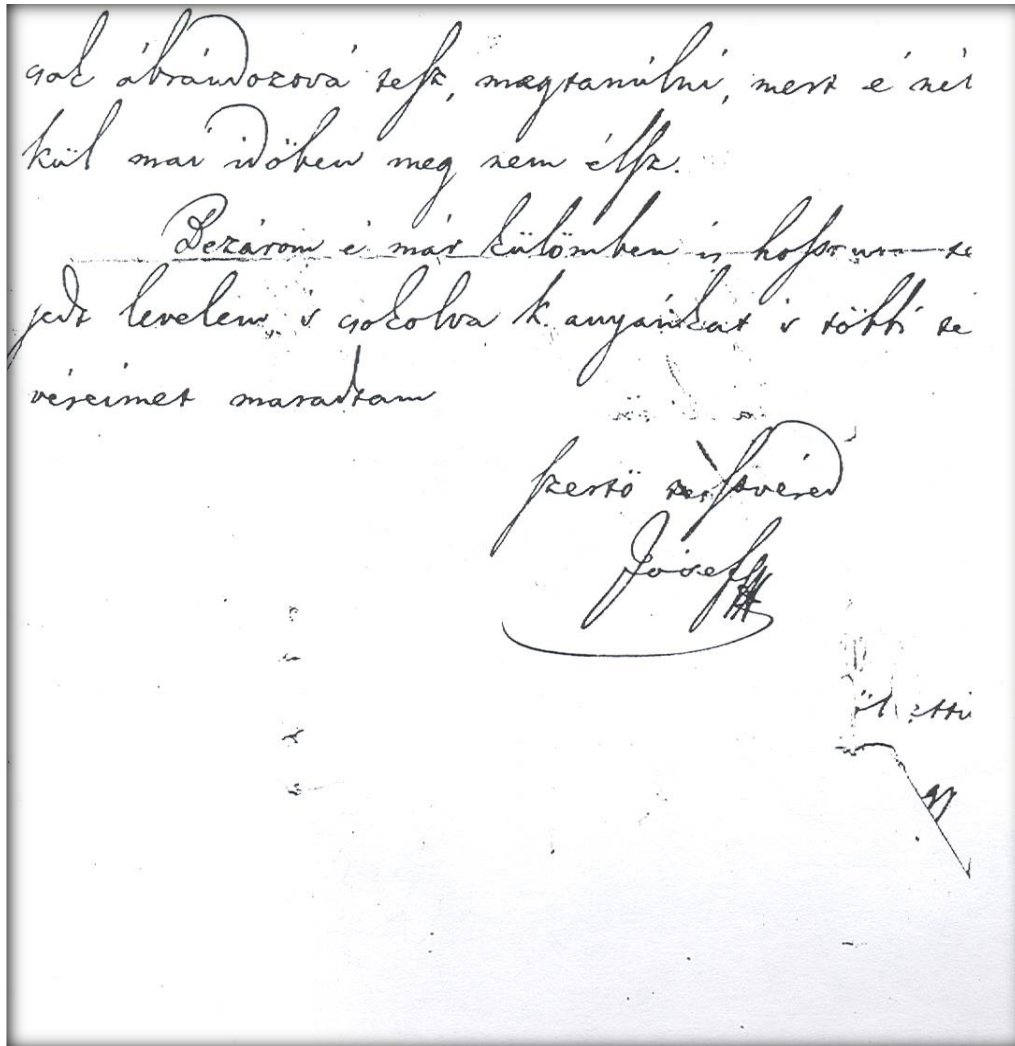 csak ábrándozová tesz, megtanúlni, mert é nél
kül mai időben meg nem élsz.
Bezárom é már külömben is hosszura te
jedt levelem, s csokolva k. anyánkat s több te
véreimet maradtam
szerető testvéred
József